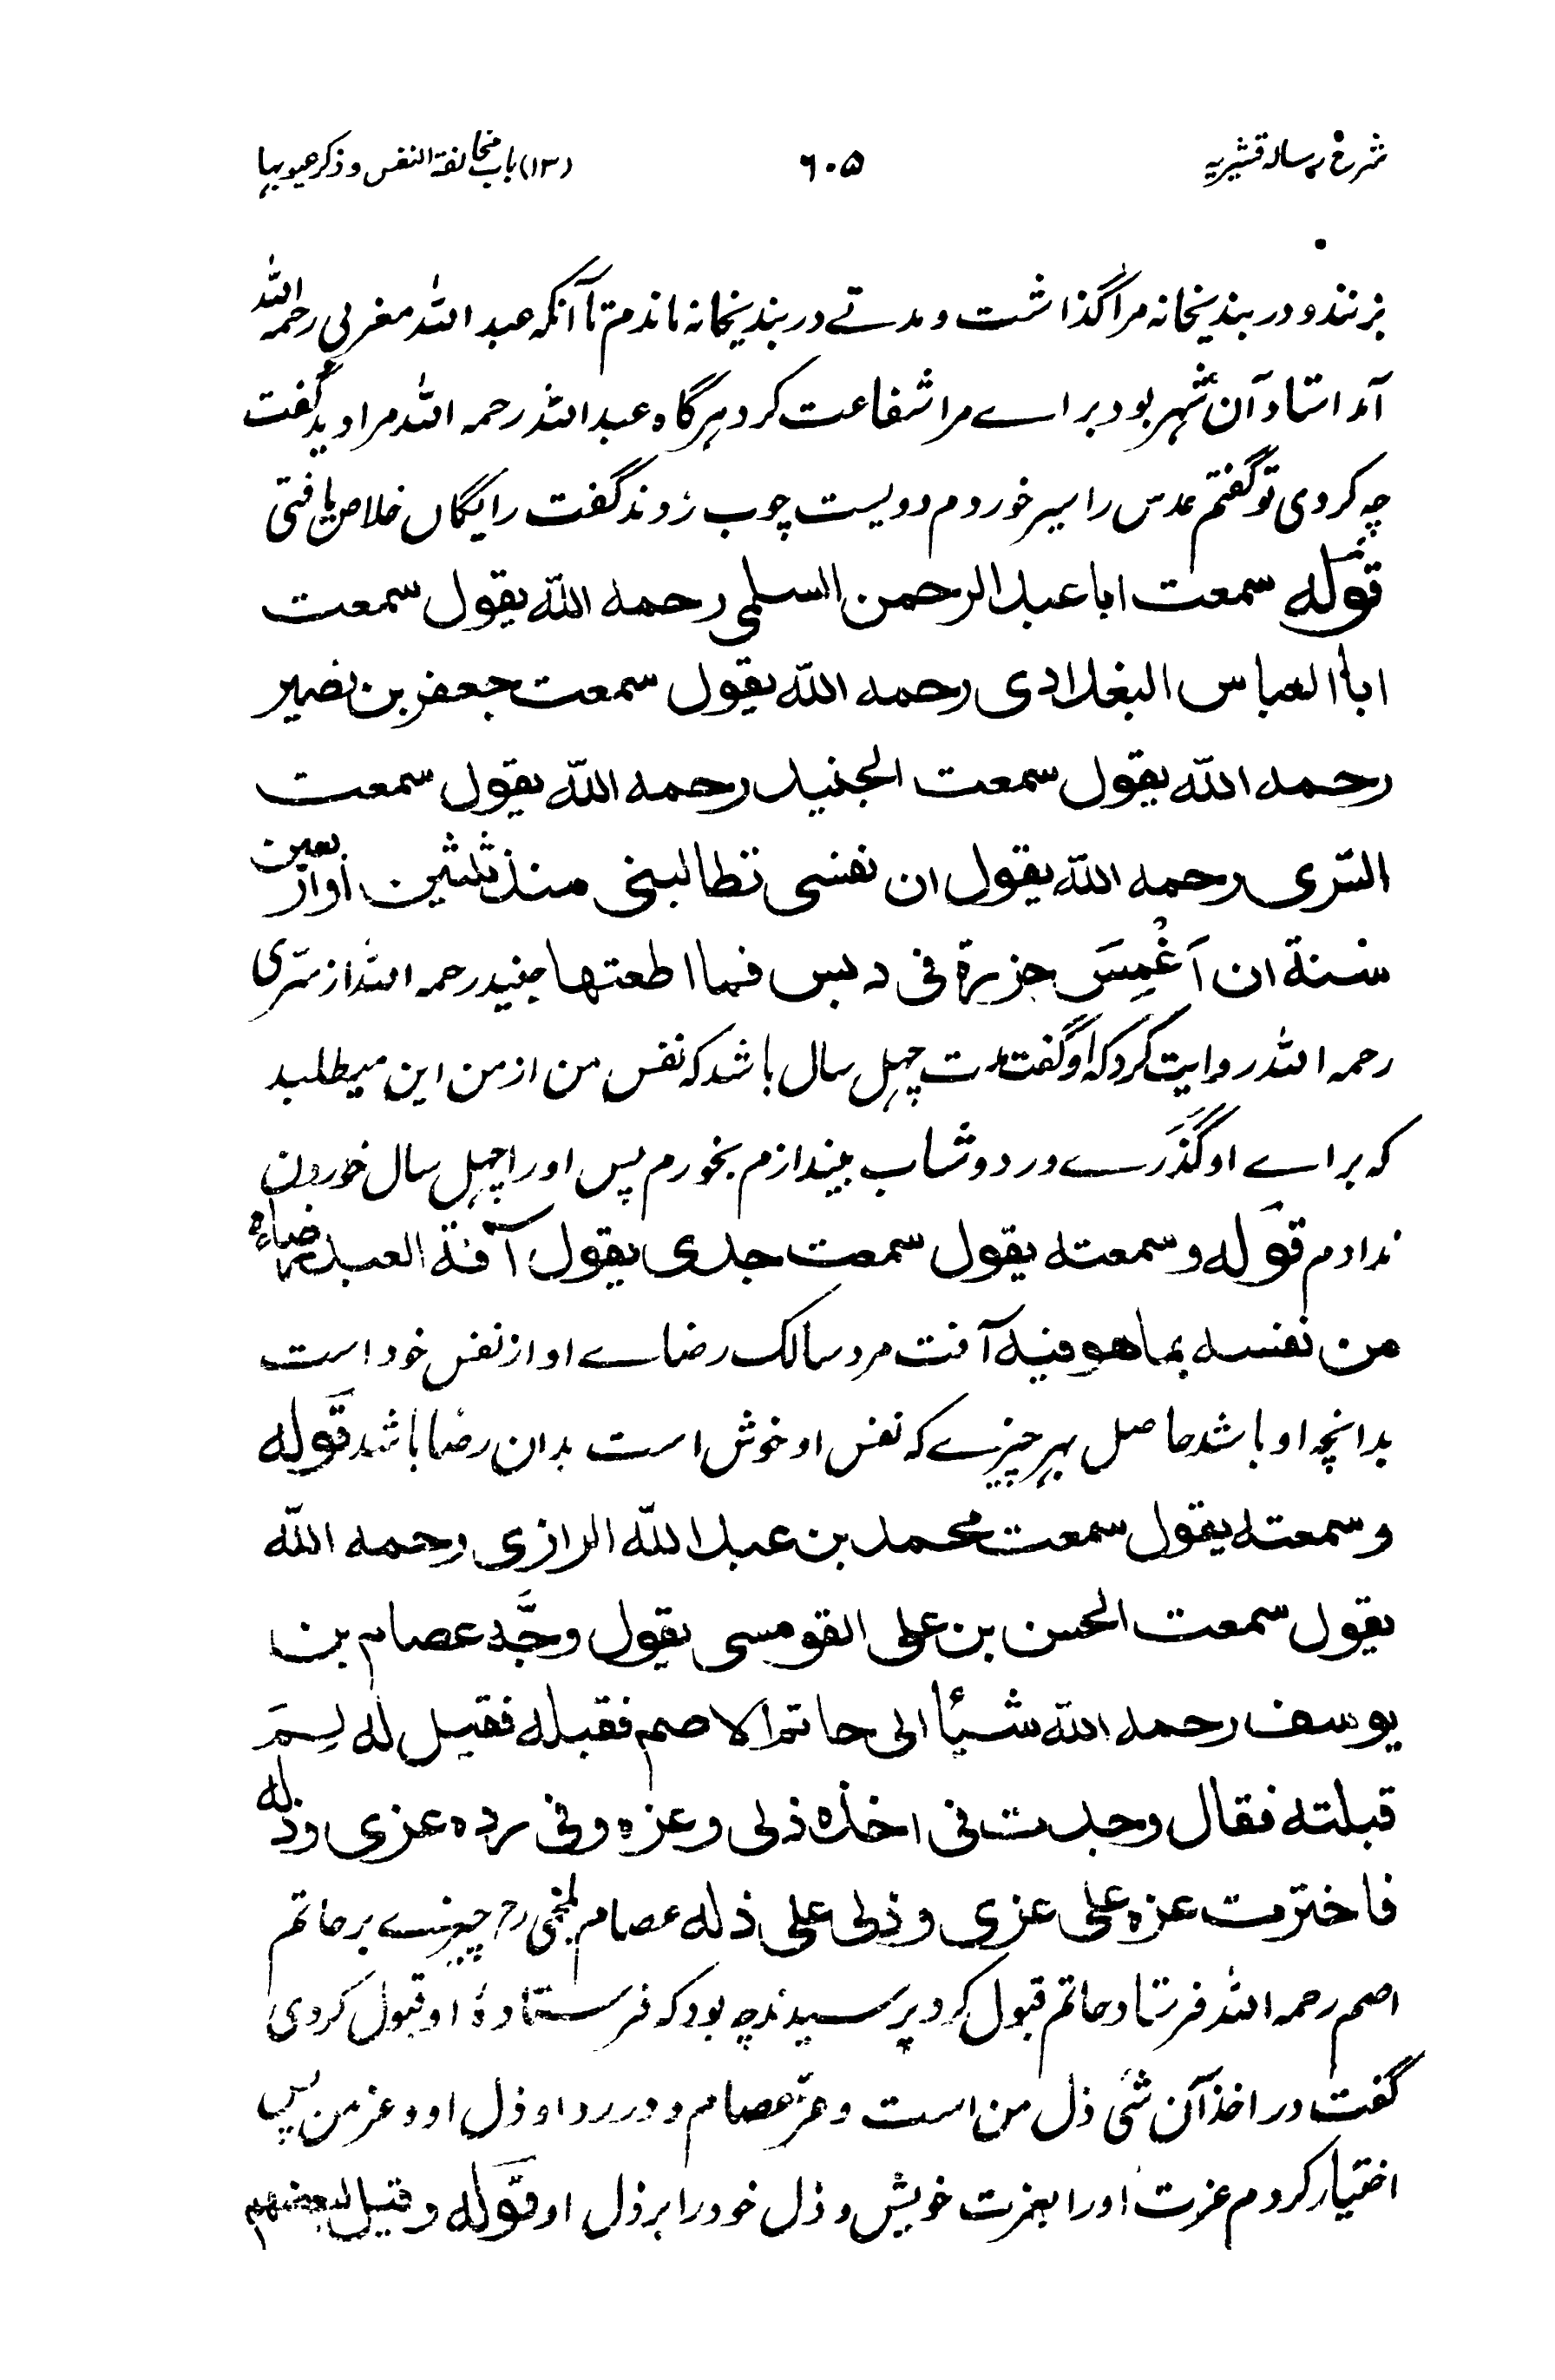 شرح رسالہ قشیریہ
۶۰۵
(۱۳) باب مخالفۃ النفس و ذکر عیوبہا
بزنند و در بندیخانہ مرا گذاشت و مدتے در بندیخانہ ماندم تا آنکہ عبد اللہ مغربی رحمہ اللہ
آمد استاد آن شہر بود برائے مرا شفاعت کرد ہرگاہ عبد اللہ رحمہ اللہ مرا دید گفت
چہ کردی تو گفتم عدس را سیر خوردم دویست چوب زدند گفت رایگاں خلاص یافتی
قولہ سمعت ابا عبد الرحمن السلمی رحمہ اللہ یقول سمعت
ابا العباس البغدادی رحمہ اللہ یقول سمعت جعفر بن نصیر
رحمہ اللہ یقول سمعت الجنید رحمہ اللہ یقول سمعت
السّری رحمہ اللہ یقول ان نفسی تطالبنی منذ ثلثین او اربعین
سنۃ ان اَغْمِسَ جزرۃ فی دبس فما اطعتها جنید رحمہ اللہ از سّری
رحمہ اللہ روایت کرد کہ او گفت مدت چہل سال باشد کہ نفس من از من این میطلبد
کہ براے او گذرے در دوشاب بیندازم بخورم پس او را چہل سال خوردن
ندادم قولہ و سمعتہ یقول سمعت جدی یقول آفۃ العبد رضاہ
من نفسہ بما هو فیہ آفت مرد سالک رضاے او از نفس خود است
بدانچہ او باشد حاصل بہر چیزے کہ نفس او خوش است بدان رضا باشد قولہ
و سمعتہ یقول سمعت محمد بن عبد اللہ الرازی رحمہ اللہ
یقول سمعت الحسن بن علی القومسی یقول وجَّہ عصام بن
یوسف رحمہ اللہ شیأً الی حاتم الاصم فقبلہ فقیل لہ لِمَ
قبلتہ فقال وجدت فی اخذہ ذلی و عزہ و فی ردہ عزی و ذلہ
فاخترت عزہ علی عزی و ذلی علی ذلہ عصام بلخی رح چیزے بر حاتم
اصم رحمہ اللہ فرستاد حاتم قبول کرد پرسیدند چہ بود کہ فرستادۂ او قبول کردی
گفت در اخذ آن شئ ذل من است و عزّ عصام و در رد او ذل او و عز من پس
اختیار کردم عزت او را بعزت خویش و ذل خود را بر ذل او قولہ و قیل لبعضهم